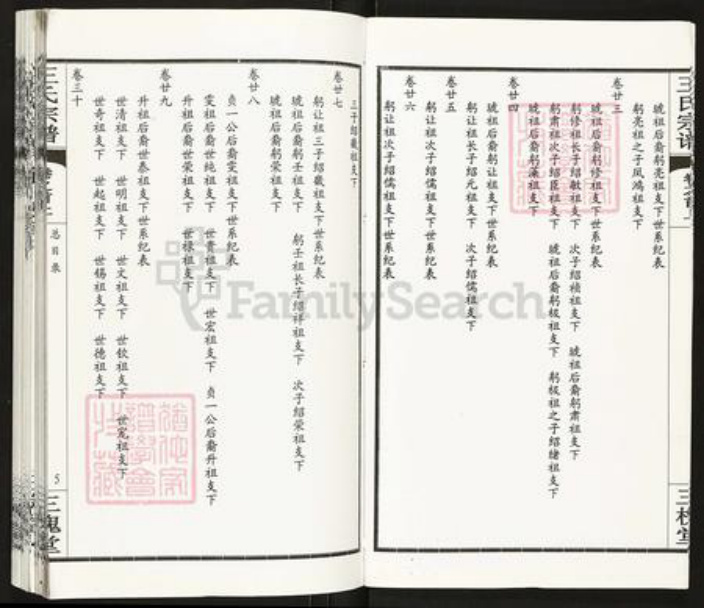 琥祖后裔躬亮祖支下世系纪表
躬亮祖之子凤鸿祖支下
卷廿三
琥祖后裔躬修祖支下世系纪表
躬修祖长子绍敏祖支下 次子绍祯祖支下 琥祖后裔躬肃祖支下
躬肃祖次子绍臣祖支下 琥祖后裔躬极祖支下 躬极祖之子绍绪祖支下
琥祖后裔躬藻祖支下
卷廿四
琥祖后裔躬让祖支下世系纪表
躬让祖长子绍元祖支下 次子绍儒祖支下
卷廿五
躬让祖次子绍儒祖支下世系纪表
卷廿六
躬让祖次子绍儒祖支下世系纪表
三子绍徽祖支下
卷廿七
躬让祖三子绍徽祖支下世系纪表
琥祖后裔躬壬祖支下 躬壬祖长子绍祥祖支下 次子绍荣祖支下
琥祖后裔躬荣祖支下
卷廿八
贞一公后裔雯祖支下世系纪表
雯祖后裔世纯祖支下 世贵祖支下 世宏祖支下 贞一公后裔升祖支下
升祖后裔世荣祖支下 世禄祖支下
卷廿九
升祖后裔世泰祖支下世系纪表
世清祖支下 世明祖支下 世文祖支下 世钦祖支下 世宽祖支下
世奇祖支下 世起祖支下 世锡祖支下 世德祖支下
卷三十
王氏宗谱
总目录
5
三槐堂
FamilySearch